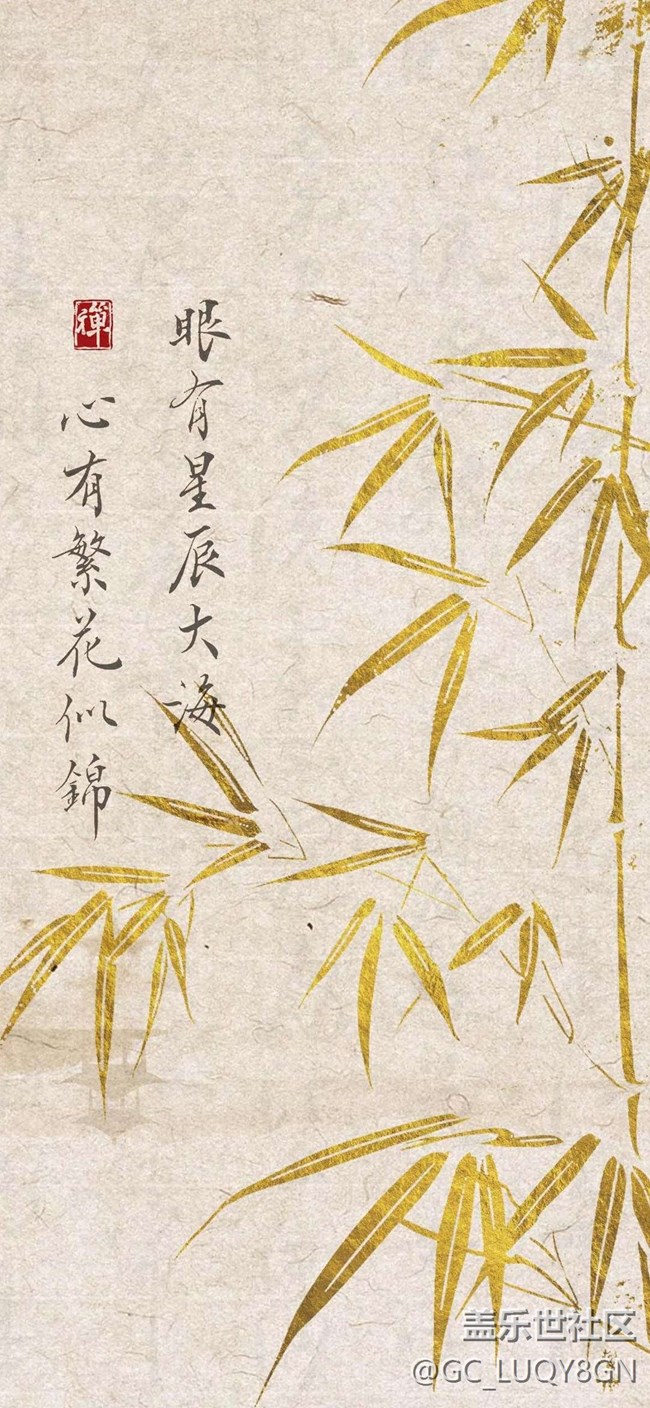 眼有星辰大海
禪
心有繁花似錦
盖乐世社区
@GC_LUQY8GN